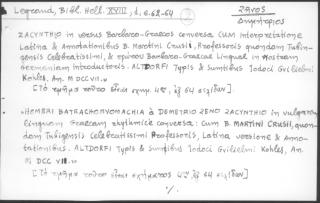 Legrand, Bibl. Hell. XVIII, 1, σ. 62-64
ΖΗΝΟΣ
Δημήτριος
ZACYNTHIO in versus Barbaro-Graecos conversa CUM interpretatione
Latina & Annotationibus B. Martini Crusii, Professoris quondam Tubin-
gensis Celebratissimi, & epirou Barbaro-Graecae Linguae in nostram
Germaniam introductoris. ALTDORFI Typis & sumtibus Jodoci Gvilielmi
Kohles, An. M DCC VII.
[Τὸ τμῆμα τοῦτο εἶναι σχημ. 4ον, ἐξ 64 σελίδων].
«HOMERI BATRACHOMYOMACHIA à DEMETRIO ZENO ZACYNTHIO in vulgarem
linguam Graecam rhythmice conversa: cum B. MARTINI CRUSII, quon-
dam Tubigensis Celebratissimi Professoris, Latina versione & Anno-
tationibus. ALTDORFI Typis & sumtibus Jodoci Gvilielmi Kohles, An.
M DCC VII.»
[Τὸ τμῆμα τοῦτο εἶναι σχήματος 4ου, ἐξ 64 σελίδων].
·/.